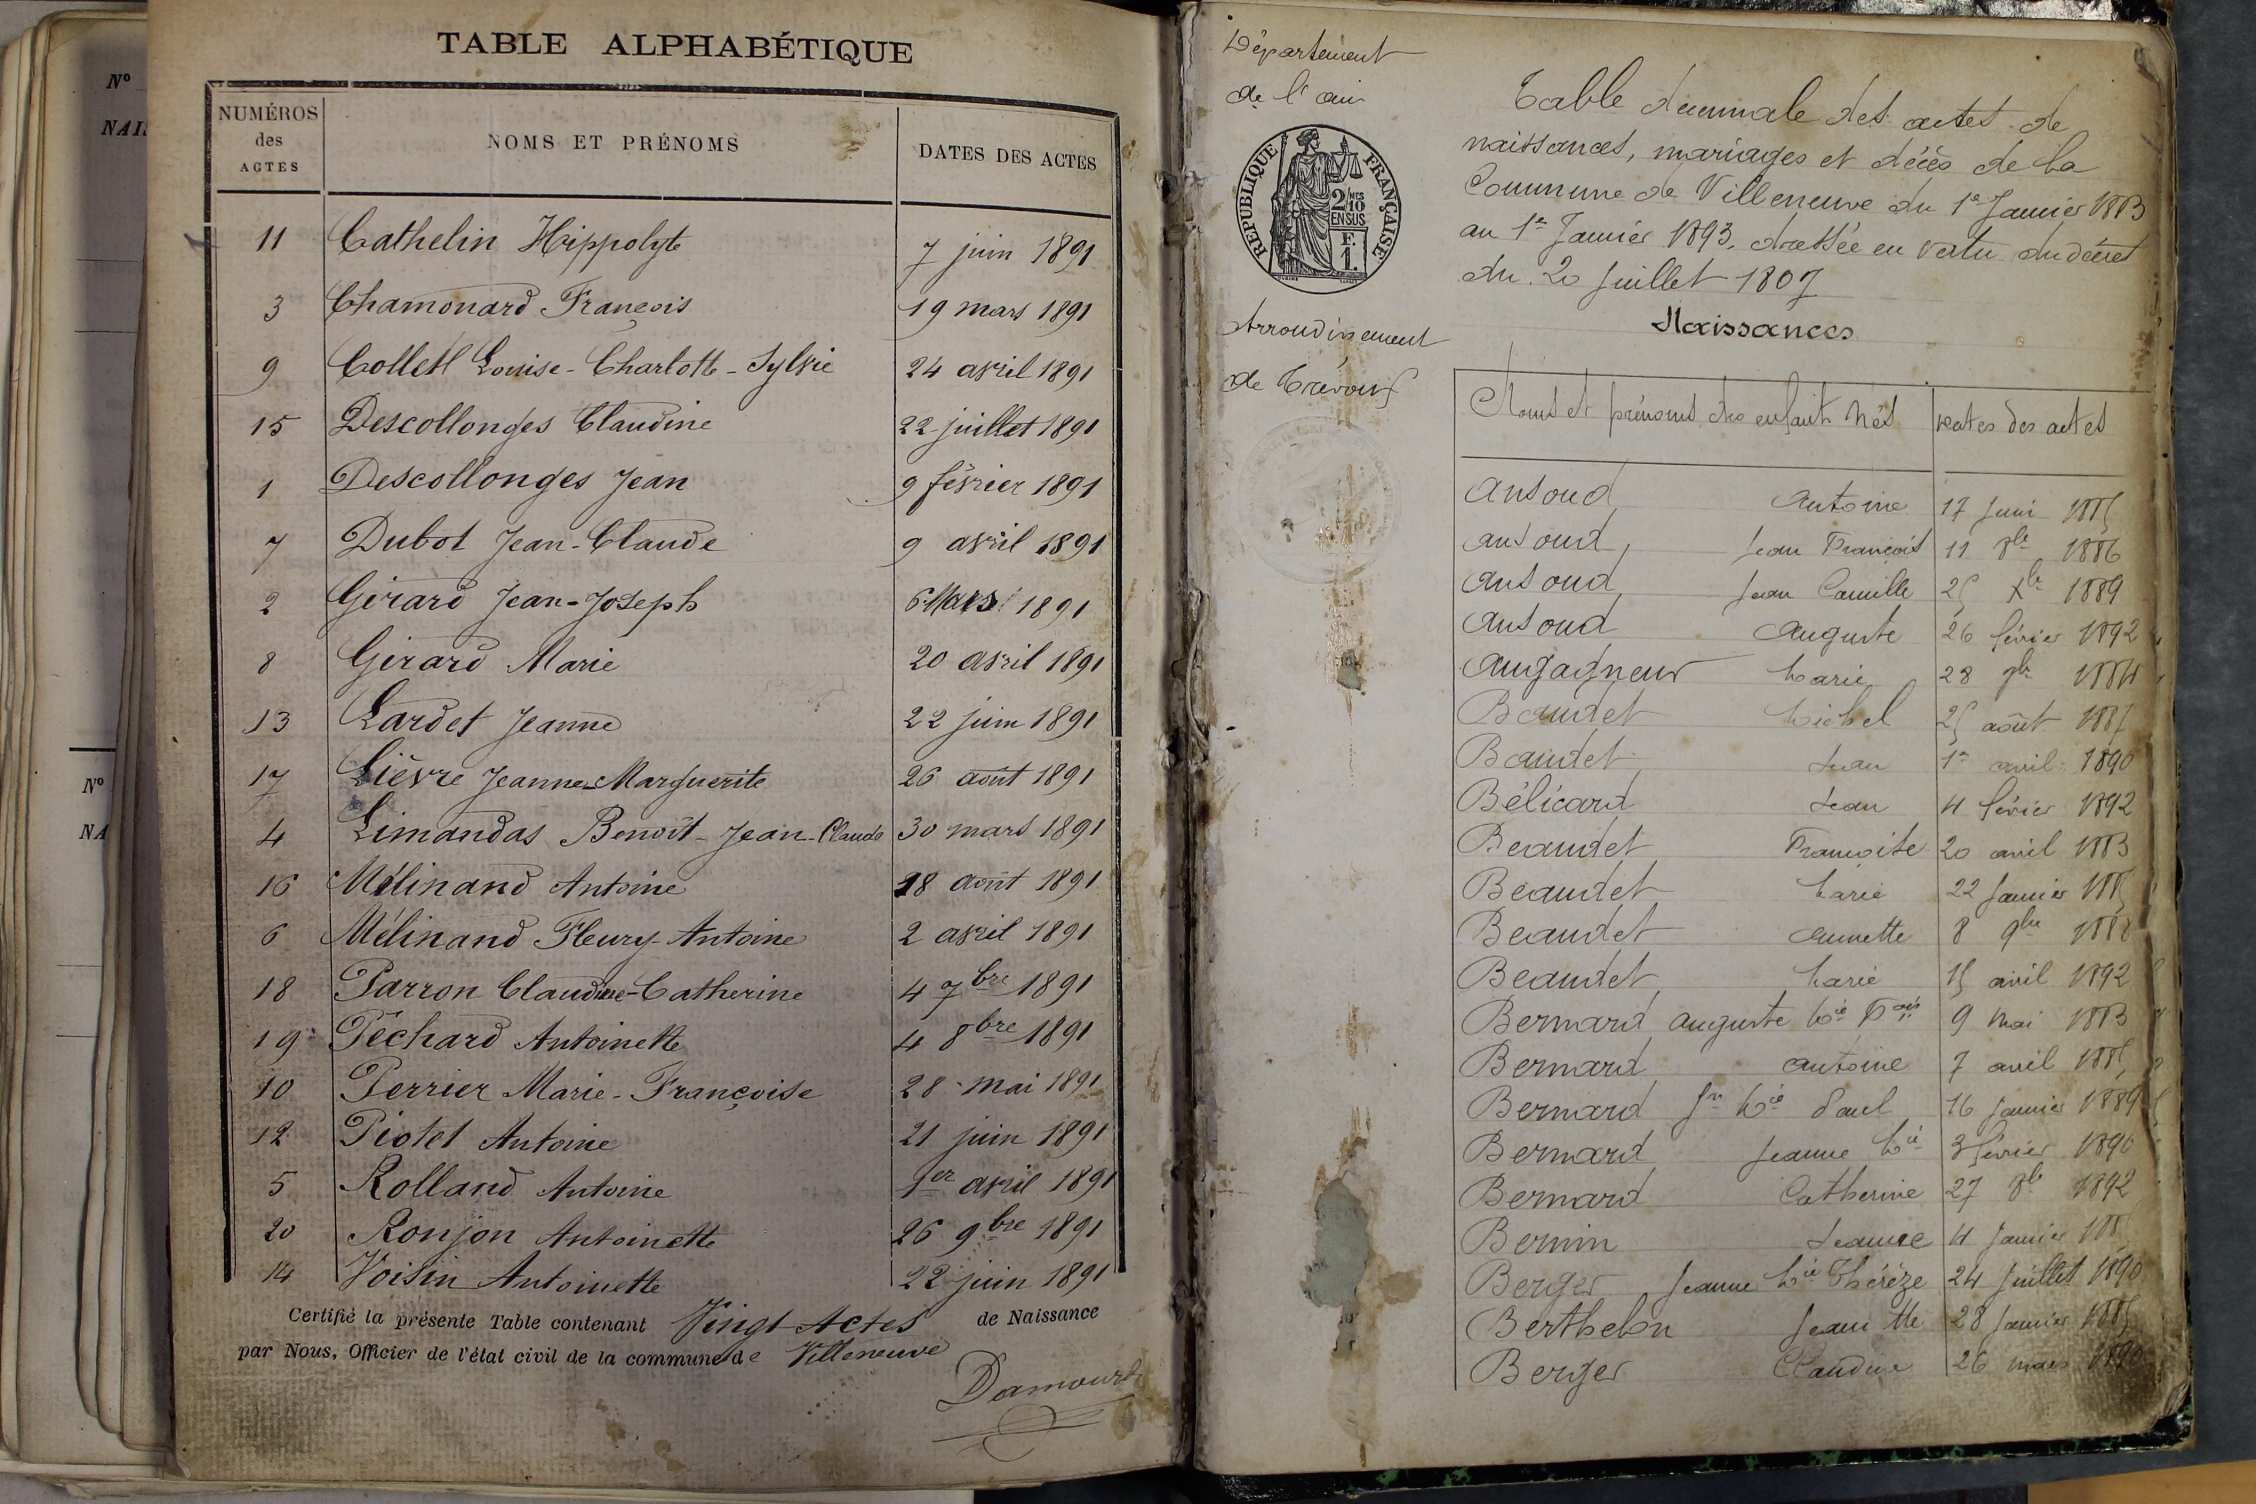 N°
NAI
N°
NA
TABLE ALPHABÉTIQUE
NUMÉROS des ACTES
NOMS ET PRÉNOMS
DATES DES ACTES
11 Cathelin Hippolyte 7 juin 1891
3 Chamonard François 19 mars 1891
9 Collet Louise-Charlotte-Sylvie 24 avril 1891
15 Descollonges Claudine 22 juillet 1891
1 Descollonges Jean 9 février 1891
7 Dubot Jean-Claude 9 avril 1891
2 Girard Jean-Joseph 6 Mars 1891
8 Girard Marie 20 avril 1891
13 Lardet Jeanne 22 juin 1891
17 Lièvre Jeanne-Marguerite 26 août 1891
4 Limandas Benoît-Jean-Claude 30 mars 1891
16 Mélinand Antoine 18 août 1891
6 Mélinand Fleury-Antoine 2 avril 1891
18 Parron Claudine-Catherine 4 7bre 1891
19 Péchard Antoinette 4 8bre 1891
10 Perrier Marie-Françoise 28 mai 1891
12 Piotet Antoine 21 juin 1891
5 Rolland Antoine 1er avril 1891
20 Ronjon Antoinette 26 9bre 1891
14 Voisin Antoinette 22 juin 1891
Certifié la présente Table contenant Vingt Actes de Naissance
par Nous, Officier de l'état civil de la commune de Villeneuve
Damour
Département
de l'ain
RÉPUBLIQUE FRANÇAISE
2/10MES
EN SUS
F.
1.
Arrondissement
de Trévoux
Table décennale des actes de
naissances, mariages et décès de la
Commune de Villeneuve du 1er Janvier 1883
au 1er Janvier 1893, dressée en vertu du décret
du 20 Juillet 1807
Naissances
Noms et prénoms des enfants nés dates des actes
ansoud antoine 17 Juin 1885
ansoud Jean François 11 8bre 1886
ansoud Jean Camille 25 Xbre 1889
ansoud auguste 26 février 1892
augagneur Marie 28 9bre 1884
Baudet Michel 25 août 1887
Baudet Jean 1er avril 1890
Bélicard Jean 4 février 1892
Beaudet Françoise 20 avril 1883
Beaudet Marie 22 Janvier 1885
Beaudet annette 8 9bre 1888
Beaudet Marie 15 avril 1892
Bernard auguste Mie Fçois 9 mai 1883
Bernard antoine 7 avril 1885
Bernard Jn Mie Paul 16 Janvier 1889
Bernard Jeanne Mie 3 février 1890
Bernard Catherine 27 8bre 1892
Bernin Jeanne 4 Janvier
Berger Jeanne Mie Thérèze 24 Juillet 1890
Berthelon Jean 28 Janvier 1885
Berger Claudine 26 mars 1890